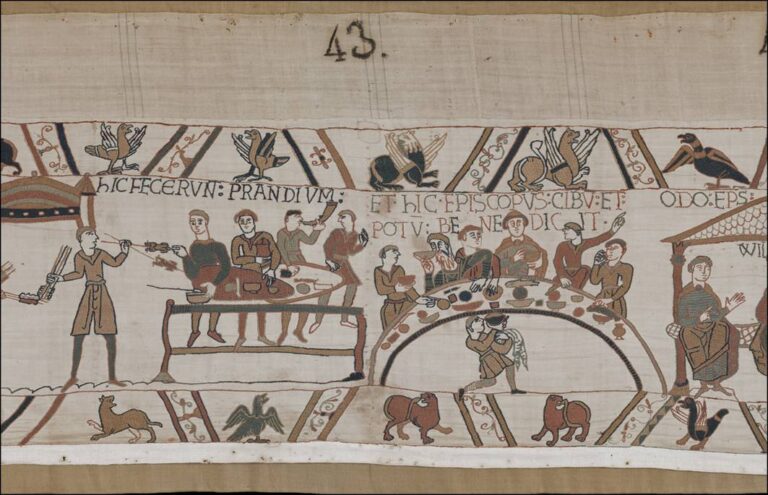 43.
hIC FECERVN : PRANDIVM :
ET hIC · EPISCOPVS : CIBV̄ : ET :
POTV̄ : BE NE DIC IT ·
ODO : EPS :
WIL